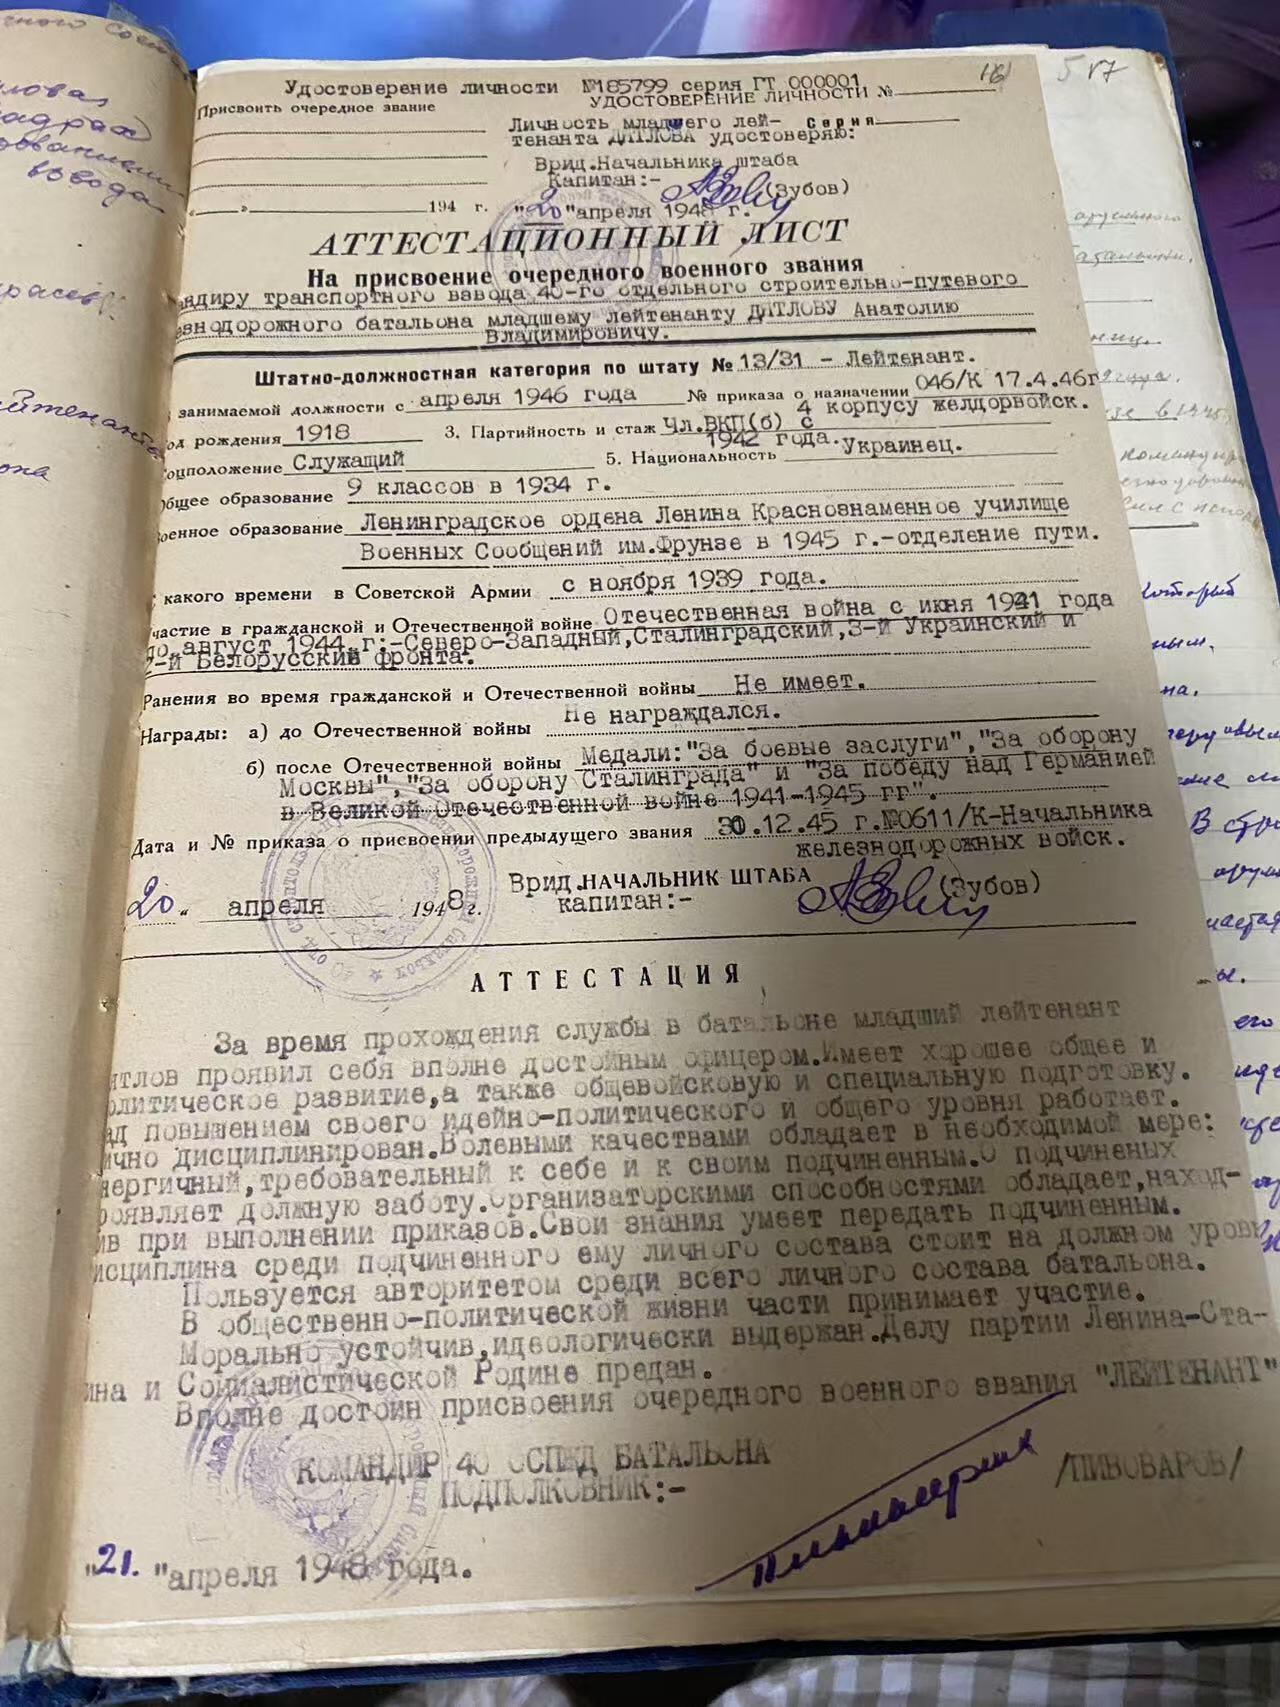 чного
Удостоверение личности №185799 серия ГТ 000001
16
5
Присвоить очередное звание
УДОСТОВЕРЕНИЕ ЛИЧНОСТИ №
Личность младшего лей-
Серия
тенанта ДЯТЛОВА удостоверяю:
Врид.Начальника штаба
Капитан:-
(Зубов)
"20" апреля 1948 г.
"__" 194 г.
АТТЕСТАЦИОННЫЙ ЛИСТ
На присвоение очередного военного звания
андиру транспортного взвода 40-го отдельного строительно-путевого
езнодорожного батальона младшему лейтенанту ДЯТЛОВУ Анатолию
Владимировичу.
Штатно-должностная категория по штату № 13/31 - Лейтенант.
занимаемой должности с апреля 1946 года № приказа о назначении 046/К 17.4.46г
4 корпусу желдорвойск.
од рождения 1918 3. Партийность и стаж Чл.ВКП(б) с
1942 года.
оцположение Служащий 5. Национальность Украинец.
бщее образование 9 классов в 1934 г.
оенное образование Ленинградское ордена Ленина Краснознаменное училище
Военных Сообщений им.Фрунзе в 1945 г.-отделение пути.
какого времени в Советской Армии с ноября 1939 года.
частие в гражданской и Отечественной войне Отечественная война с июня 1941 года
по август 1944 г:-Северо-Западный,Сталинградский,3-й Украинский и
2-й Белорусский фронта.
Ранения во время гражданской и Отечественной войны Не имеет.
Награды: а) до Отечественной войны Не награждался.
б) после Отечественной войны Медали:"За боевые заслуги","За оборону
Москвы","За оборону Сталинграда" и "За победу над Германией
в Великой Отечественной войне 1941-1945 гг".
Дата и № приказа о присвоении предыдущего звания 30.12.45 г.№0611/К-Начальника
железнодорожных войск.
Врид.НАЧАЛЬНИК ШТАБА
капитан:-
(Зубов)
20 " апреля 1948 г.
АТТЕСТАЦИЯ
За время прохождения службы в батальоне младший лейтенант
ятлов проявил себя вполне достойным офицером.Имеет хорошее общее и
олитическое развитие,а также общевойсковую и специальную подготовку.
ад повышением своего идейно-политического и общего уровня работает.
ично дисциплинирован.Волевыми качествами обладает в необходимой мере:
нергичный,требовательный к себе и к своим подчиненным.О подчиненых
роявляет должную заботу.Организаторскими способностями обладает,наход-
ив при выполнении приказов.Свои знания умеет передать подчиненным.
исциплина среди подчиненного ему личного состава стоит на должном уровн
Пользуется авторитетом среди всего личного состава батальона.
В общественно-политической жизни части принимает участие.
Морально устойчив,идеологически выдержан.Делу партии Ленина-Ста-
ина и Социалистической Родине предан.
Вполне достоин присвоения очередного военного звания "ЛЕЙТЕНАНТ"
КОМАНДИР 40 ОСПЖД БАТАЛЬОНА
ПОДПОЛКОВНИК:-
/ПИВОВАРОВ/
"21." апреля 1948 года.